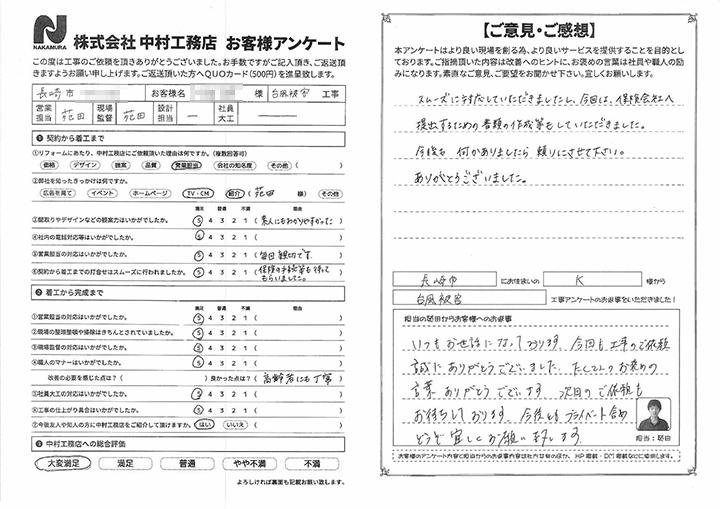 NAKAMURA
株式会社 中村工務店 お客様アンケート
この度は工事のご依頼を頂きありがとうございました。お手数ですがご記入頂き、ご返送頂
きますようお願い申し上げます。ご返送頂いた方へQUOカード(500円)を進呈致します。
長崎 市 お客様名 様 台風被害 工事
営業担当 苑田 現場監督 苑田 設計担当 ー 社員大工
❶ 契約から着工まで
①リフォームにあたり、中村工務店にご依頼頂いた理由は何ですか。(複数回答可)
価格 デザイン 提案 品質 営業担当 会社の知名度 その他( )
②弊社を知ったきっかけは何ですか。
広告を見て イベント ホームページ TV・CM 紹介 ( 苑田 様) その他
満足 普通 不満 理由
③間取りやデザインなどの提案力はいかがでしたか。 5 4 3 2 1 ( 素人にもわかりやすかった )
④社内の電話対応等はいかがでしたか。 5 4 3 2 1 ( )
⑤営業担当の対応はいかがでしたか。 5 4 3 2 1 ( 毎回親切です )
⑥契約から着工までの打合せはスムーズに行われましたか。 5 4 3 2 1 ( 保険の手続等も待ってもらいました。 )
❷ 着工から完成まで
満足 普通 不満 理由
①営業担当の対応はいかがでしたか。 5 4 3 2 1 ( )
②現場の整理整頓や掃除はきちんとされていましたか。 5 4 3 2 1 ( )
③現場監督の対応はいかがでしたか。 5 4 3 2 1 ( )
④職人のマナーはいかがでしたか。 5 4 3 2 1 ( )
改善の必要を感じた点は?( ) 良かった点は?( 高齢者にも丁寧 )
⑤社員大工の対応はいかがでしたか。 5 4 3 2 1 ( )
⑥工事の仕上がり具合はいかがでしたか。 5 4 3 2 1 ( )
⑦今後友人や知人の方に中村工務店をご紹介して頂けますか。 ( はい いいえ )
❸ 中村工務店への総合評価
大変満足 満足 普通 やや不満 不満
よろしければ裏面も記載お願い致します。
【ご意見・ご感想】
本アンケートはより良い現場を創る為、より良いサービスを提供することを目的とし
ております。ご指摘頂いた内容は改善へのヒントに、お褒めの言葉は社員や職人の励
みになります。素直なご意見、ご要望をお聞かせ下さい。宜しくお願いします。
スムーズに対応していただきましたし、今回は、保険会社へ
提出するための書類の作成等もしていただきました。
今後も 何かありましたら 頼りにさせて下さい。
ありがとうございました。
長崎市 にお住まいの K 様から
台風被害 工事アンケートのお返事をいただきました!
担当の苑田からお客様へのお返事
いつもお世話になっております。今回も工事のご依頼
誠にありがとうございました。たくさんのお褒めの
言葉 ありがとうございます。次回のご依頼も
お待ちしております。今後ともプライベート含め
どうぞ宜しくお願い致します。
担当:苑田
お客様のアンケート内容と担当からのお返事内容は社内共有のほか、HP掲載・DM掲載などに使用します。